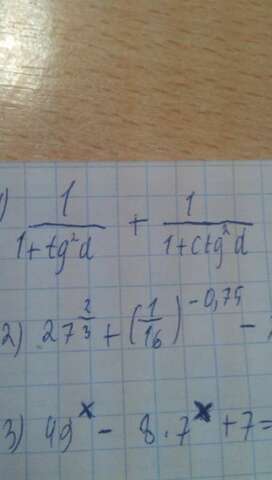 1) 1/(1+tg²d) + 1/(1+ctg²d)
2) 27^(2/3) + (1/16)^(-0,75) -
3) 49^x - 8.7^x + 7 =